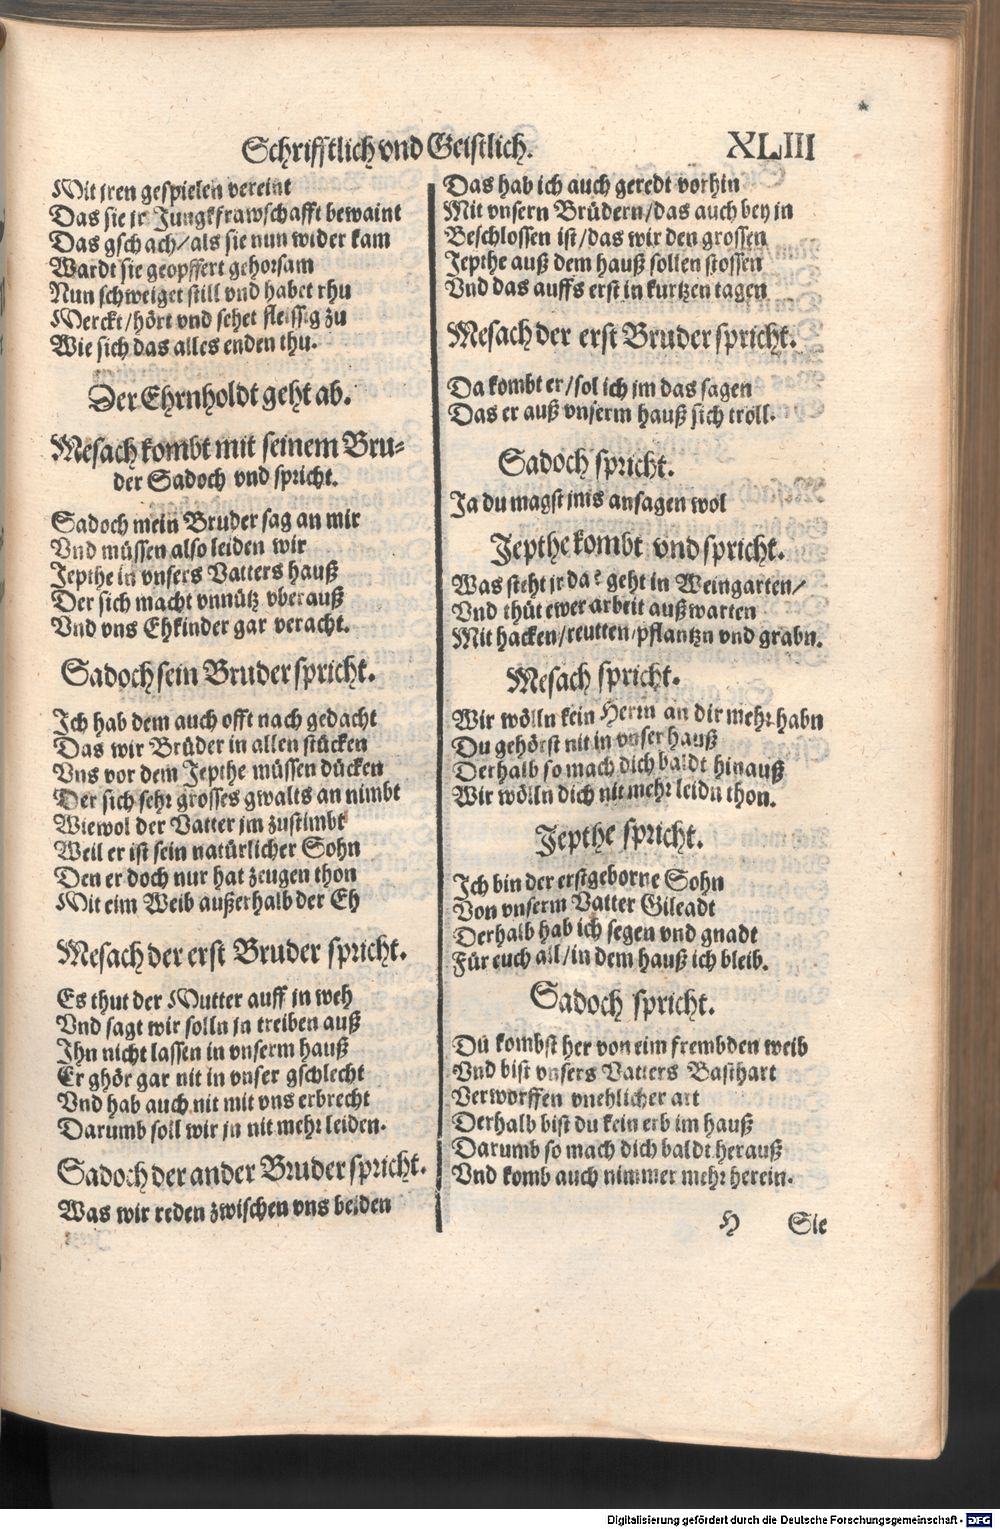 Schrifftlich vnd Geistlich. XLIII
Mit jren gespielen vereint
Das sie jr Jungkfrawschafft bewaint
Das gschach/als sie nun wider kam
Wardt sie geopffert gehorsam
Nun schweiget still vnd habet rhu
Merckt/hört vnd sehet fleissig zu
Wie sich das alles enden thu.
Der Ehrnholdt geht ab.
Mesach kombt mit seinem Bru-
der Sadoch vnd spricht.
Sadoch mein Bruder sag an mir
Vnd müssen also leiden wir
Jepthe in vnsers Vatters hauß
Der sich macht vnnütz vberauß
Vnd vns Ehkinder gar veracht.
Sadoch sein Bruder spricht.
Ich hab dem auch offt nach gedacht
Das wir Brüder in allen stücken
Vns vor dem Jepthe müssen dücken
Der sich sehr grosses gwalts an nimbt
Wiewol der Vatter jm zustimbt
Weil er ist sein natürlicher Sohn
Den er doch nur hat zeugen thon
Mit eim Weib außerhalb der Eh
Mesach der erst Bruder spricht.
Es thut der Mutter auff jn weh
Vnd sagt wir solln jn treiben auß
Ihn nicht lassen in vnserm hauß
Er ghör gar nit in vnser gschlecht
Vnd hab auch nit mit vns erbrecht
Darumb soll wir jn nit mehr leiden.
Sadoch der ander Bruder spricht.
Was wir reden zwischen vns beiden
Das hab ich auch geredt vorhin
Mit vnsern Brüdern/das auch bey jn
Beschlossen ist/das wir den grossen
Jepthe auß dem hauß sollen stossen
Vnd das auffs erst in kurtzen tagen
Mesach der erst Bruder spricht.
Da kombt er/sol ich jm das sagen
Das er auß vnserm hauß sich troll.
Sadoch spricht.
Ja du magst jms ansagen wol
Jepthe kombt vnd spricht.
Was steht jr da? geht in Weingarten/
Vnd thüt ewer arbeit außwarten
Mit hacken/reutten/pflantzn vnd grabn.
Mesach spricht.
Wir wölln kein Herrn an dir mehr habn
Du gehörst nit in vnser hauß
Derhalb so mach dich baldt hinauß
Wir wölln dich nit mehr leidn thon.
Jepthe spricht.
Ich bin der erstgeborne Sohn
Von vnserm Vatter Gileadt
Derhalb hab ich segen vnd gnadt
Für euch all/in dem hauß ich bleib.
Sadoch spricht.
Du kombst her von eim frembden weib
Vnd bist vnsers Vatters Basthart
Verworffen vnehlicher art
Derhalb bist du kein erb im hauß
Darumb so mach dich baldt herauß
Vnd komb auch nimmer mehr herein.
H Sie
Digitalisierung gefördert durch die Deutsche Forschungsgemeinschaft - DFG